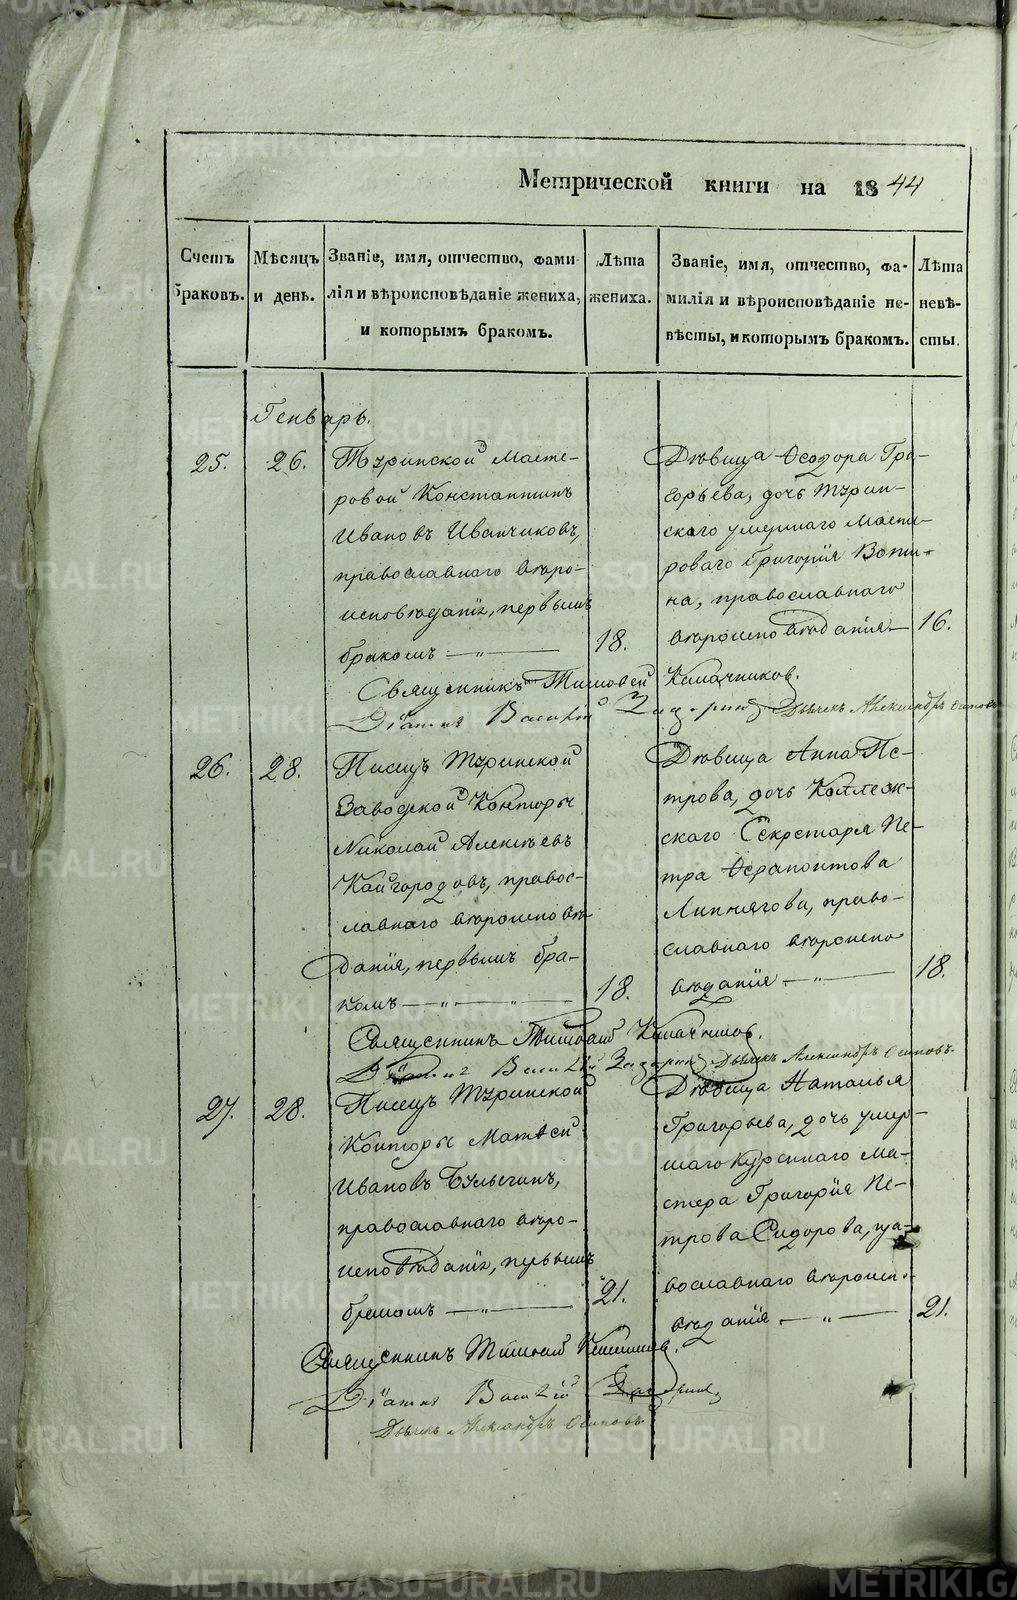 Метрической книги на 1844
Счетъ браковъ.
Мѣсяцъ и день.
Званіе, имя, отчество, фами-
лія и вѣроисповѣданіе жениха,
и которымъ бракомъ.
Лѣта жениха.
Званіе, имя, отчество, фа-
милія и вѣроисповѣданіе не-
вѣсты, и которымъ бракомъ.
Лѣта невѣ-
сты.
Генварь.
25.
26.
Туринской Масте-
ровой Константинъ
Ивановъ Иванчиковъ,
православнаго вѣро-
исповѣданія, первымъ
бракомъ — „ —
18.
Дѣвица Ѳеодора Гри-
горьева, дочь Турин-
скаго умершаго Масте-
роваго Григорія Воти-
на, православнаго
вѣроисповѣданія —
16.
Священникъ Тимоѳей
Діаконъ Василій
Дьячекъ Александръ Осиповъ
26.
28.
Писецъ Туринской
Заводской Конторы
Николай Алексѣевъ
Кайгородовъ, правос-
лавнаго вѣроисповѣ-
данія, первымъ бра-
комъ — „ — „ —
18.
Дѣвица Анна Пе-
трова, дочь Коллеж-
скаго Секретаря Пе-
тра Ѳерапонтова
Липнягова, право-
славнаго вѣроиспо-
вѣданія — „ —
18.
Священникъ Тимоѳей
Діаконъ Василій
Дьячекъ Александръ Осиповъ.
27.
28.
Писецъ Туринской
Конторы Матвей
Ивановъ Булыгинъ,
православнаго вѣро-
исповѣданія, первымъ
бракомъ — „ —
21.
Дѣвица Наталья
Григорьева, дочь умер-
шаго Куреннаго Ма-
стера Григорія Пе-
трова Сидорова, пра-
вославнаго вѣроиспо-
вѣданія — „ —
21.
Священникъ Тимоѳей
Діаконъ Василій
Дьячекъ Александръ Осиповъ
METRIKI.GASO-URAL.RU